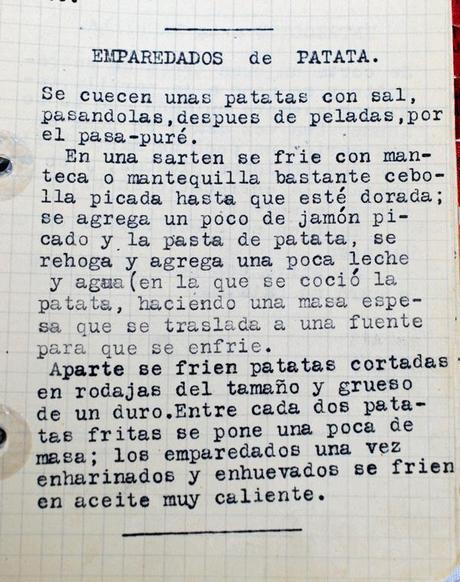 EMPAREDADOS de PATATA.
Se cuecen unas patatas con sal,
pasandolas,despues de peladas,por
el pasa-puré.
En una sarten se frie con man-
teca o mantequilla bastante cebo-
lla picada hasta que esté dorada;
se agrega un poco de jamón pi-
cado y la pasta de patata, se
rehoga y agrega una poca leche
y agua(en la que se coció la
patata, haciendo una masa espe-
sa que se traslada a una fuente
para que se enfrie.
Aparte se frien patatas cortadas
en rodajas del tamaño y grueso
de un duro.Entre cada dos pata-
tas fritas se pone una poca de
masa; los emparedados una vez
enharinados y enhuevados se frien
en aceite muy caliente.